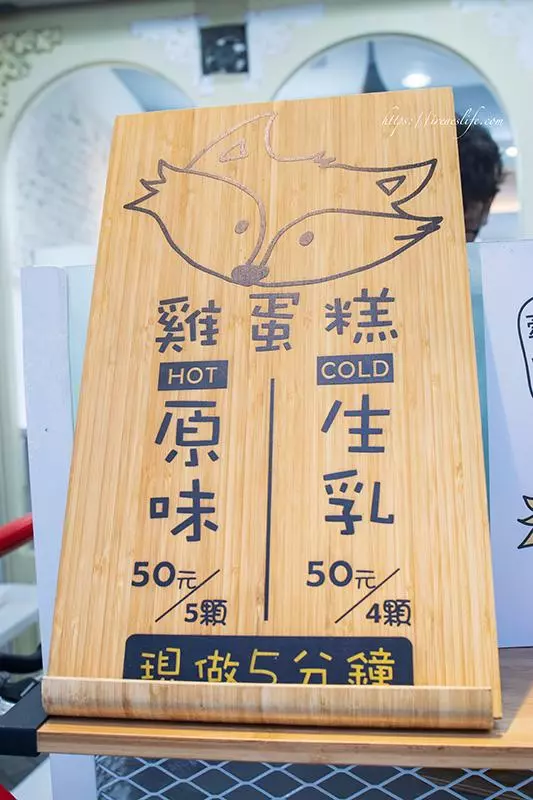 https://ireneslife.com
雞蛋糕
HOT
原味
50元/5顆
COLD
生乳
50元/4顆
現做5分鐘